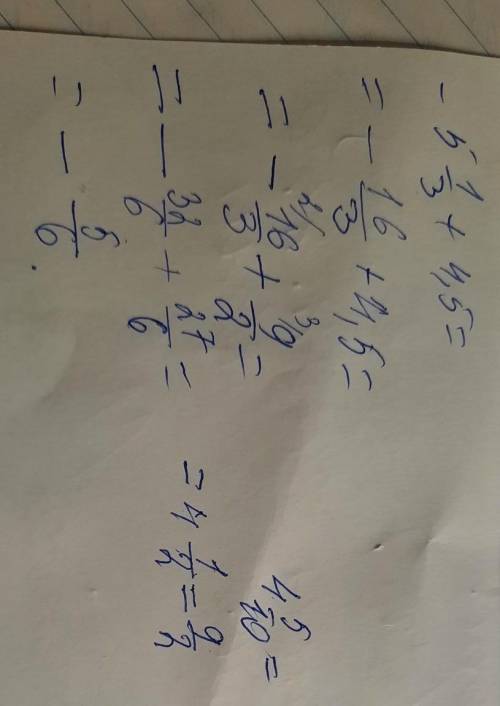 - 5 1/3 + 4,5 =
= - 16/3 + 4,5 =
= - 2/ 16/3 + 3/ 9/2 =
= - 32/6 + 27/6 =
= - 5/6.
4 5/10 =
= 4 1/2 = 9/2